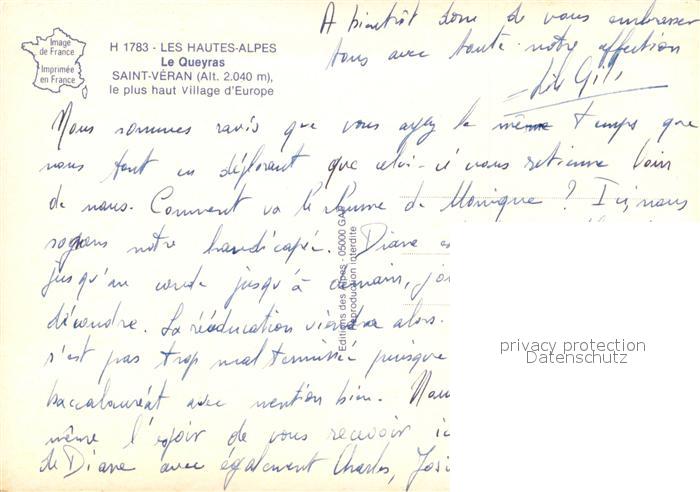 Image
de France
Imprimée
en France
H 1783 - LES HAUTES-ALPES
Le Queyras
SAINT-VÉRAN (Alt. 2.040 m),
le plus haut Village d'Europe
A bientôt donc de vous embrasser
tous avec toute notre affection
Nous sommes ravis que vous ayez le même temps que
nous tout en déplorant que celui-ci vous retienne loin
de nous. Comment va le de Monique ? Ici, nous
soignons notre handicapée. Diane
jusqu'au coude jusqu'à demain,
découdre. La rééducation viendra alors.
s'est pas trop mal terminée puisque
baccalauréat avec mention bien. Nous
même l'espoir de vous recevoir ic
de Diane avec également Charles, Josi
Editions des Alpes - 05000 GA
Reproduction interdite
privacy protection
Datenschutz